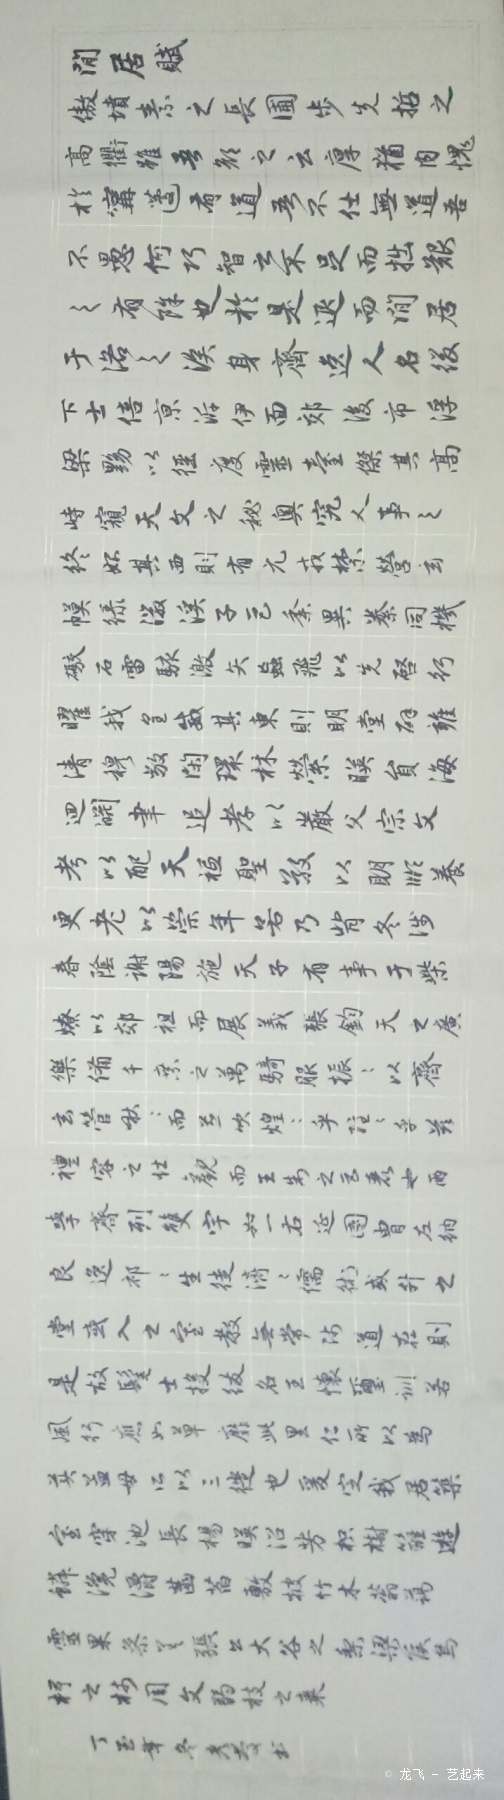 閒居賦
傲墳素之長圃步先哲之
高衢雖吾顏之云厚猶內愧
於甯蘧有道吾不仕無道吾
不愚何巧智之不足而拙艱
之有餘也於是退而閒居
于洛之涘身齊逸人名綴
下士倍京泝伊面郊後市浮
梁黝以徑度靈臺傑其高
峙窺天文之秘奧究人事之
終始其西則有元戎禁營玄
幙綠徽溪子巨黍異絭同機
礮石雷駭激矢蝱飛以先啓行
曜我皇威其東則明堂辟雍
清穆敞閑環林縈映員海
迴淵聿追孝以嚴父宗文
考以配天秖聖敬以明順養
更老以崇年若乃背冬涉
春陰謝陽施天子有事于柴
燎以郊祖而展義張鈞天之廣
樂備千乘之萬騎服振〻以齊
玄管啾〻而並吹煌〻乎隱〻乎茲
禮容之壯觀而王制之巨麗也兩
學齊列雙宇如一右延國胄左納
良逸祁〻生徒濟〻儒術或升之
堂或入之室教無常師道在則
是故髦士投紱名王懷璽訓若
風行應如草靡此里仁所以為
美孟母所以三徙也爰定我居築
室穿池長楊映沼芳枳樹籬遊
鱗瀺灂菡萏敷披竹木蓊藹
靈果參差張公大谷之梨梁侯烏
椑之柿周文弱枝之棗
年冬
© 龙飞 - 艺起来